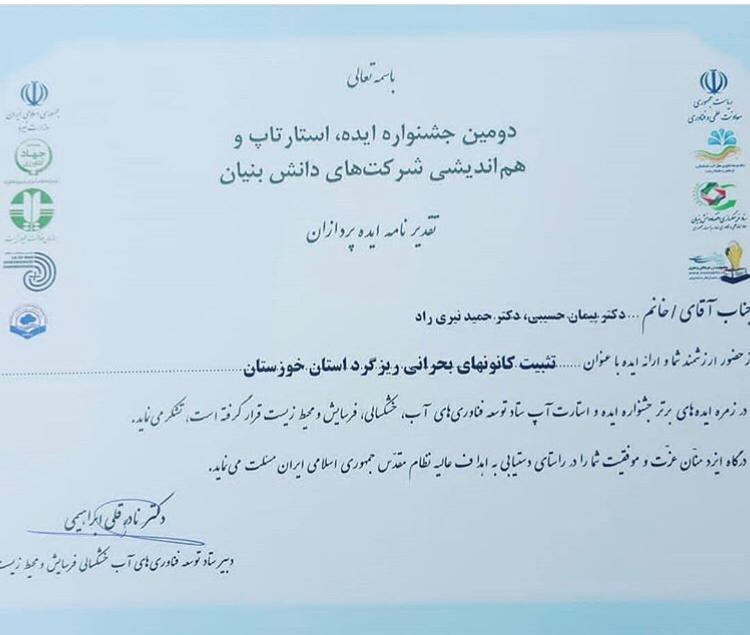 باسمه تعالی
دومین جشنواره ایده، استارتاپ و
هم‌اندیشی شرکت‌های دانش بنیان
تقدیرنامه ایده پردازان
جمهوری اسلامی ایران
وزارت نیرو
جهاد
ریاست جمهوری
معاونت علمی و فناوری
جناب آقای / خانم ...دکتر پیمان حسیبی، دکتر حمید نیری راد
از حضور ارزشمند شما و ارائه ایده با عنوان ......تثبیت کانونهای بحرانی ریزگرد استان خوزستان......
در زمره ایده‌های برتر جشنواره ایده و استارت آپ ستاد توسعه فناوری‌های آب، خشکسالی، فرسایش و محیط زیست قرار گرفته است، تشکر می‌نماید.
درگاه ایزد منّان عزّت و موفقیت شما را در راستای دستیابی به اهداف عالیه نظام مقدّس جمهوری اسلامی ایران مسئلت می‌نماید.
دکتر نادرقلی ابراهیمی
دبیر ستاد توسعه فناوری‌های آب خشکسالی فرسایش و محیط زیست